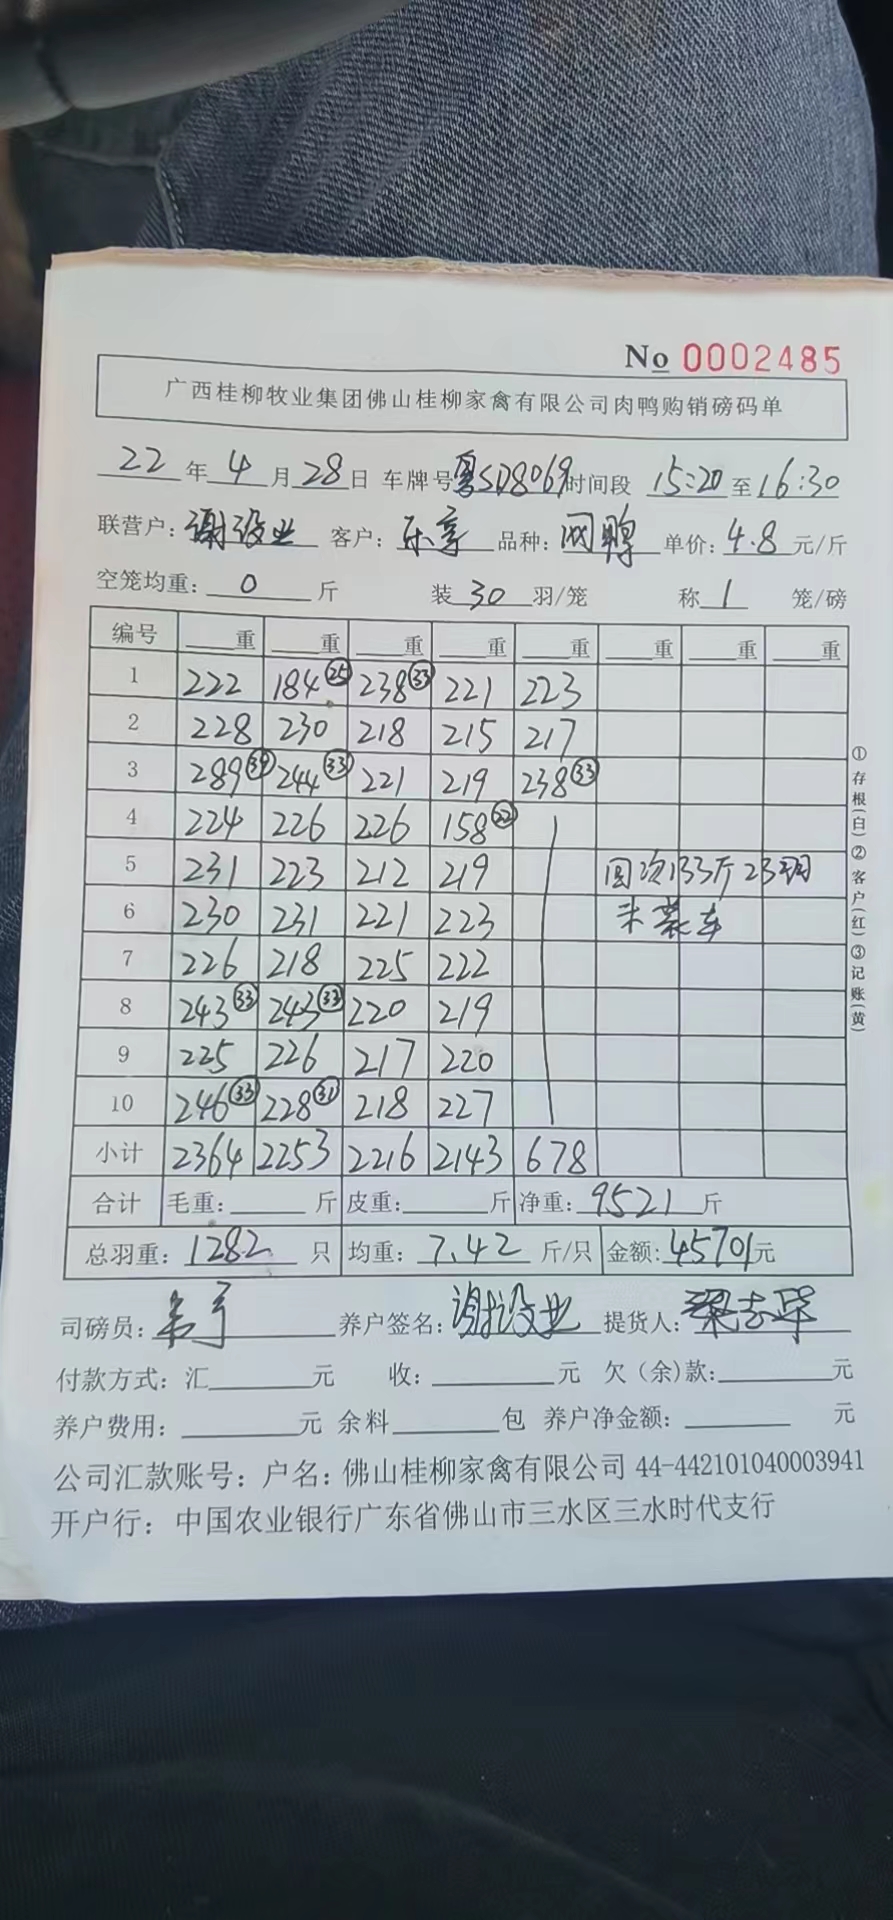 No 0002485
广西桂柳牧业集团佛山桂柳家禽有限公司肉鸭购销磅码单
22年4月28日 车牌号粤SD8069时间段 15:20至16:30
联营户：谢设业 客户：乐享 品种：肉鸭 单价：4.8元/斤
空笼均重：0斤 装30羽/笼 称1笼/磅
编号 重 重 重 重 重 重 重 重
1 222 184㉕ 238㉝ 221 223
2 228 230 218 215 217
3 289㊴ 244㉝ 221 219 238㉝
4 224 226 226 158㉒
5 231 223 212 219 回次133斤23羽
6 230 231 221 223 未装车
7 226 218 225 222
8 243㉝ 243㉝ 220 219
9 225 226 217 220
10 246㉝ 228㉛ 218 227
小计 2364 2253 2216 2143 678
合计 毛重：斤 皮重：斤 净重：9521斤
总羽重：1282只 均重：7.42斤/只 金额：45701元
司磅员： 养户签名：谢设业 提货人：梁志华
付款方式：汇元 收：元 欠（余）款：元
养户费用：元 余料包 养户净金额：元
公司汇款账号：户名：佛山桂柳家禽有限公司 44-442101040003941
开户行：中国农业银行广东省佛山市三水区三水时代支行
①存根（白）②客户（红）③记账（黄）